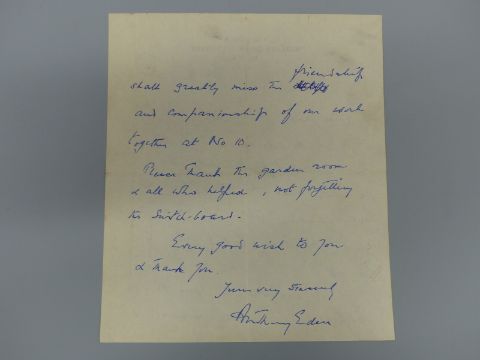 friendship
shall greatly miss the
and companionship of our work
together at No 10.
Please thank the garden room
& all who helped, not forgetting
the switch-board.
Every good wish to you
& thank you.
Yours very sincerely
Anthony Eden